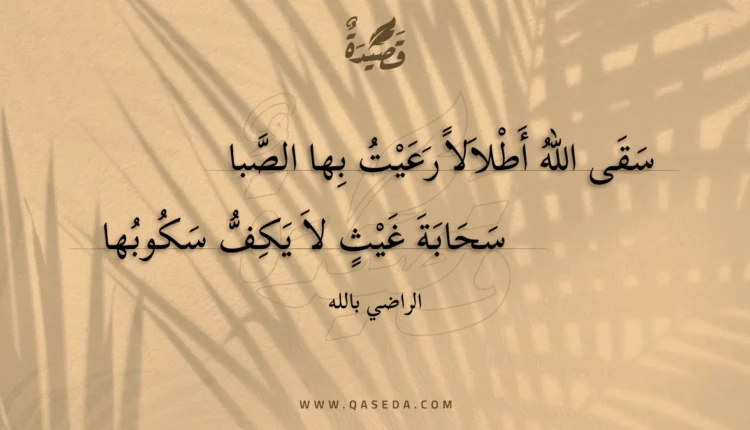 قَصِيدَةٌ
سَقَى اللهُ أَطْلاَلاً رَعَيْتُ بِها الصَّبا
سَحَابَةَ غَيْثٍ لاَ يَكِفُّ سَكُوبُها
الراضي بالله
WWW.QASEDA.COM